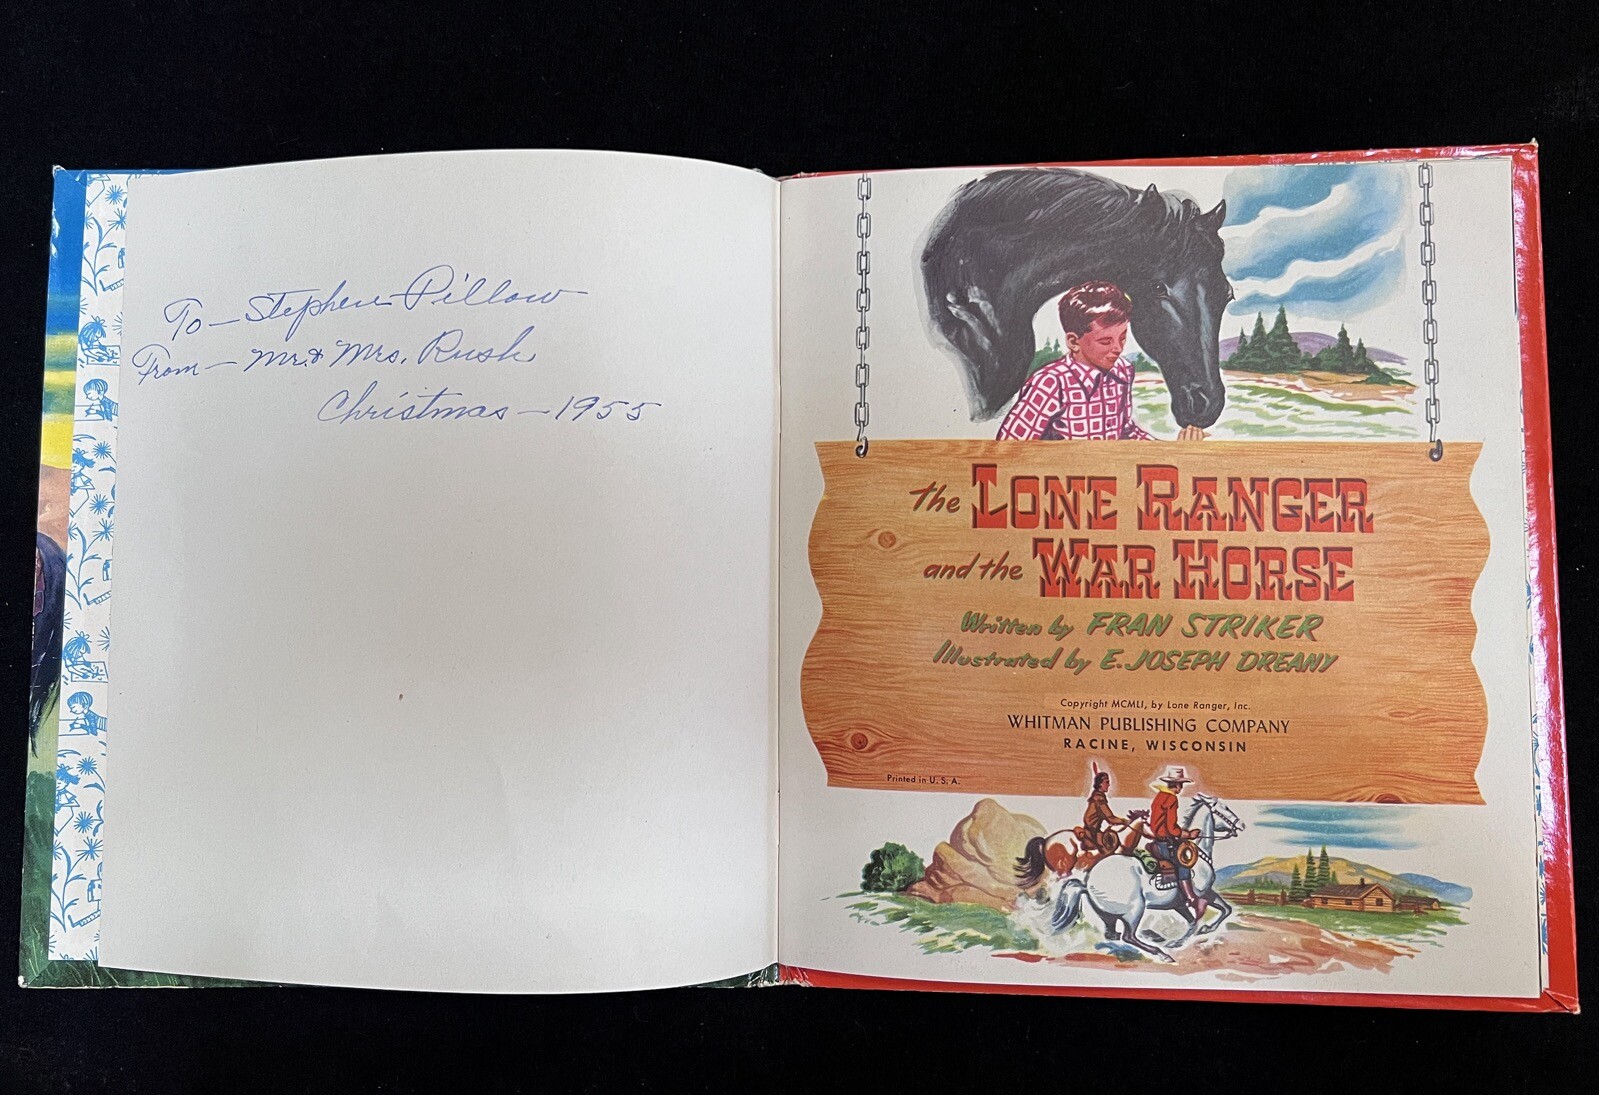 To - Stephen Pillow
From - Mr. & Mrs. Rush
Christmas - 1955
the LONE RANGER
and the WAR HORSE
Written by FRAN STRIKER
Illustrated by E. JOSEPH DREANY
Copyright MCMLI, by Lone Ranger, Inc.
WHITMAN PUBLISHING COMPANY
RACINE, WISCONSIN
Printed in U. S. A.